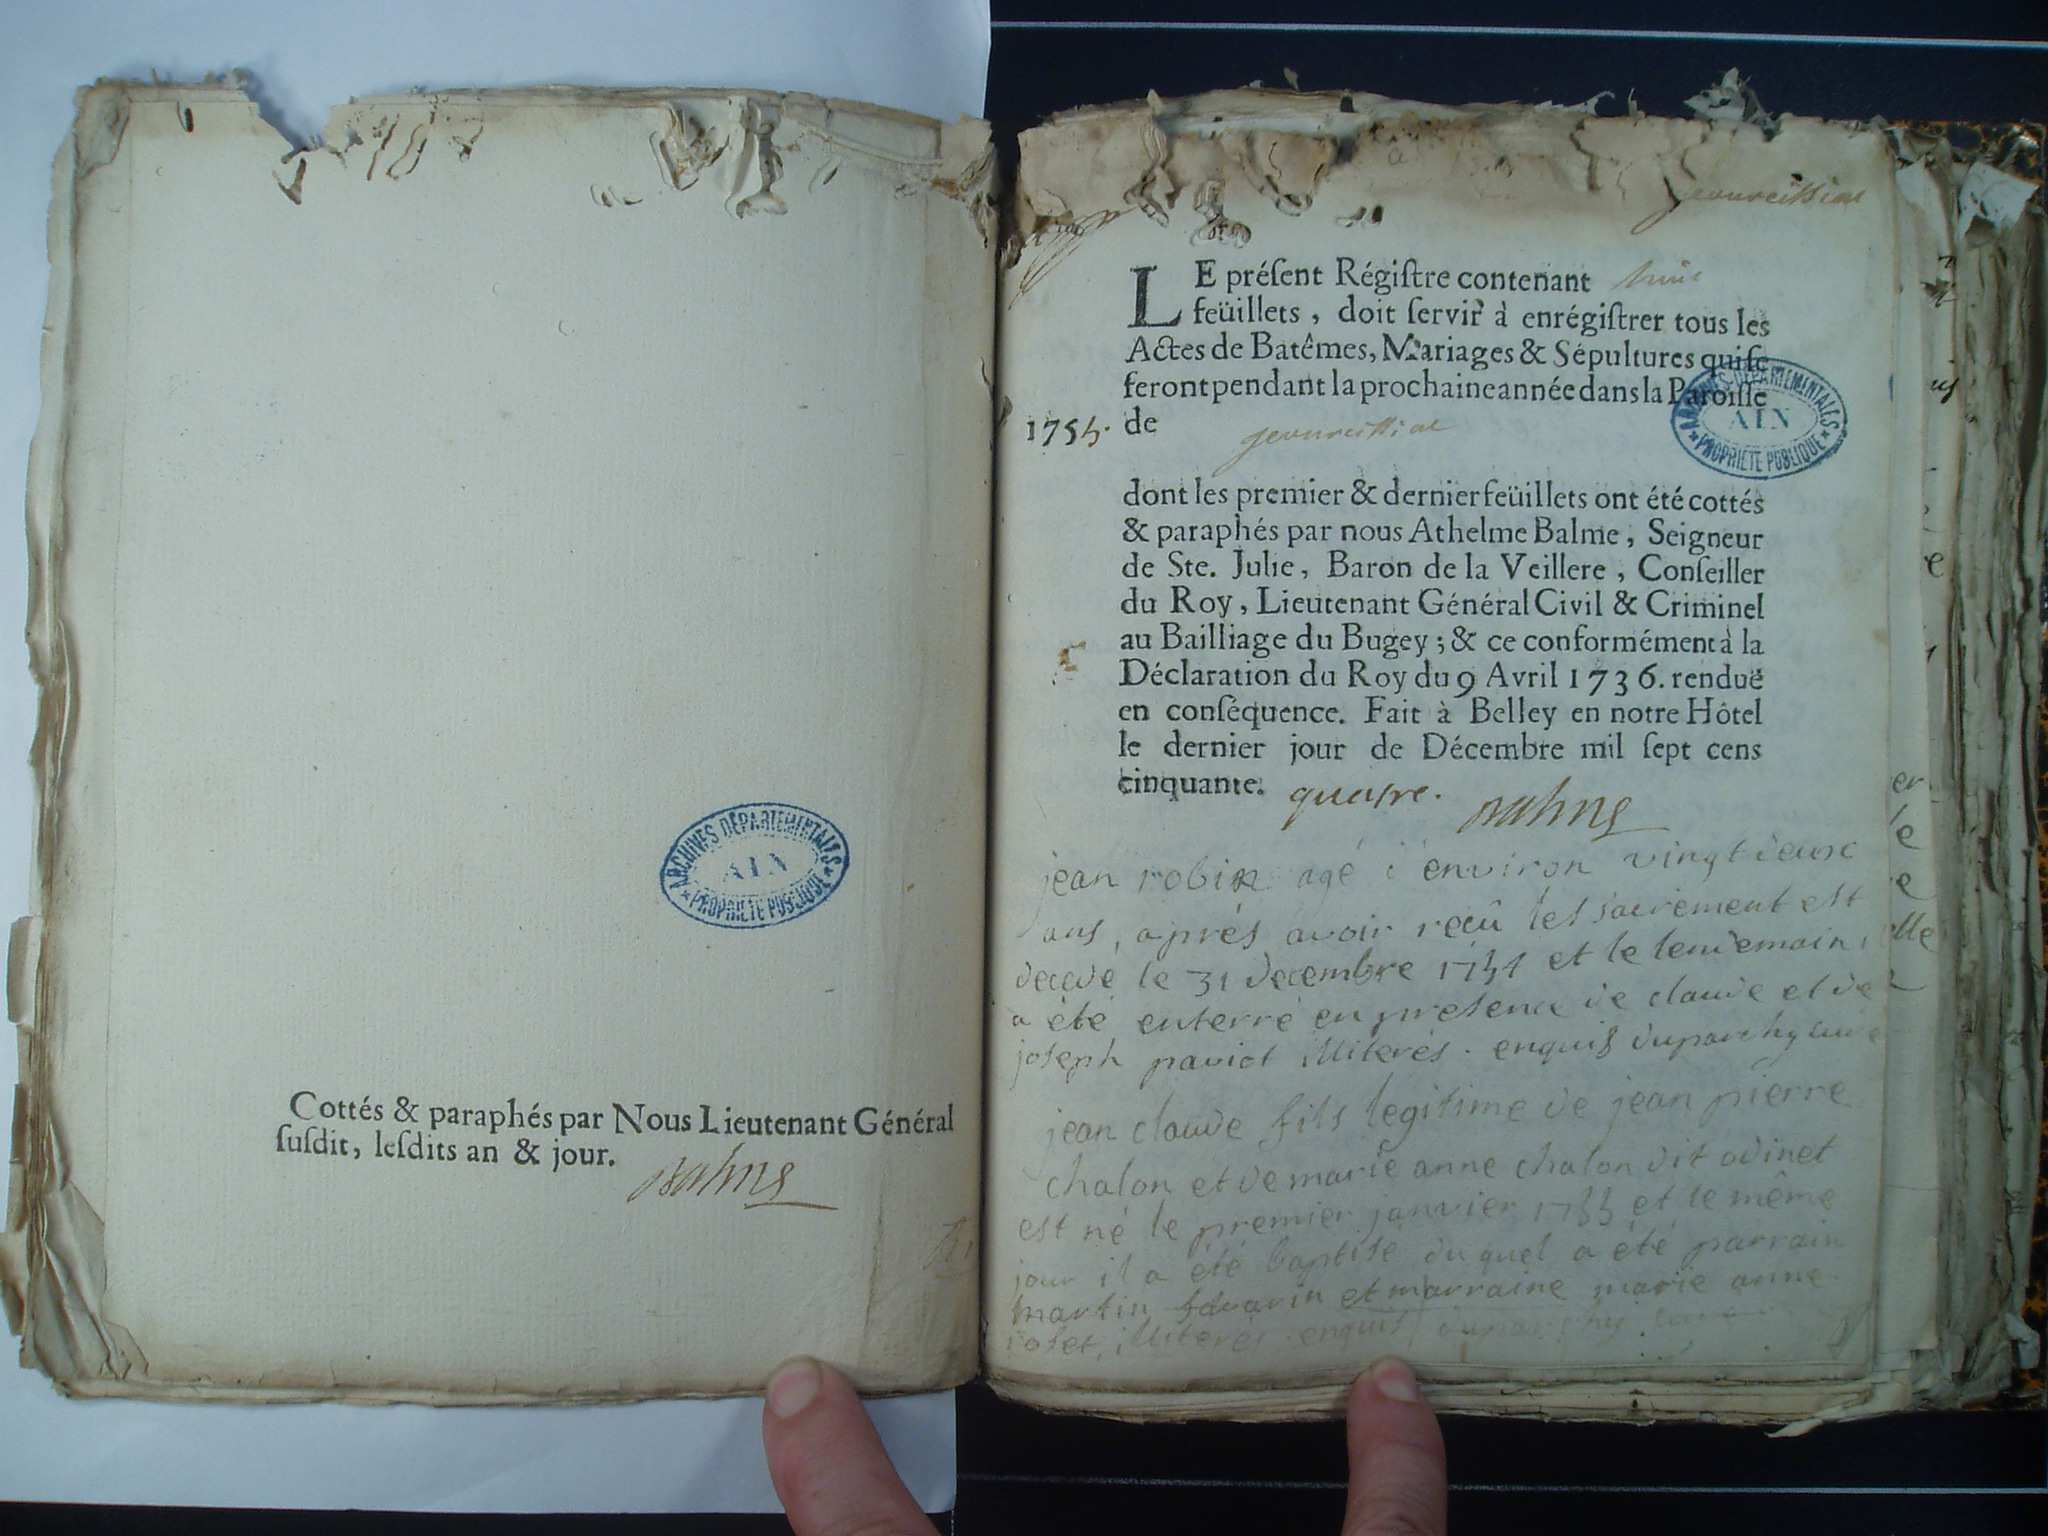 Cottés & paraphés par Nous Lieutenant Général
susdit, lesdits an & jour.
Balme
ARCHIVES DÉPARTEMENTALES
AIN
* PROPRIÉTÉ PUBLIQUE *
jeoureissiat
LE présent Régistre contenant huit
feüillets, doit servir à enrégistrer tous les
Actes de Batêmes, Mariages & Sépultures qui se
feront pendant la prochaine année dans la Paroisse
1755. de jeoureissiat
ARCHIVES DÉPARTEMENTALES
AIN
* PROPRIÉTÉ PUBLIQUE *
dont les premier & dernier feüillets ont été cottés
& paraphés par nous Athelme Balme, Seigneur
de Ste. Julie, Baron de la Veillere, Conseiller
du Roy, Lieutenant Général Civil & Criminel
au Bailliage du Bugey; & ce conformément à la
Déclaration du Roy du 9 Avril 1736. renduë
en conséquence. Fait à Belley en notre Hôtel
le dernier jour de Décembre mil sept cens
cinquante. quatre. Balme
jean robin agé d'environ vingt deux
ans, aprés avoir reçû les sacrement est
decedé le 31 decembre 1754 et le lendemain
a été enterré en presence de claude et de
joseph paviot illiterés. enquis duparchy curé
jean claude fils legitime de jean pierre
chalon et de marie anne chalon dit odinet
est né le premier janvier 1755 et le même
jour il a été baptisé duquel a été parrain
martin savarin et marraine marie anne
illiterés. enquis duparchy